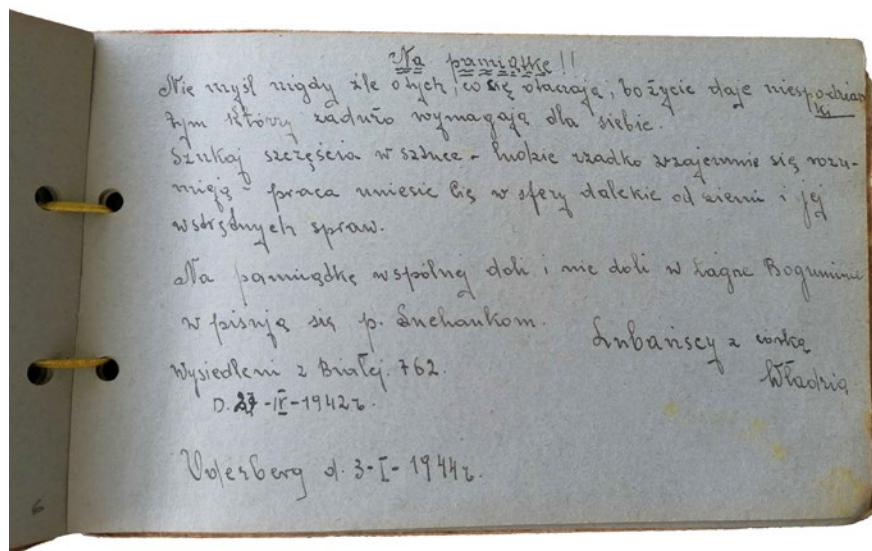 Na pamiątkę!!
Nie myśl nigdy źle o tych, co Cię otaczają, bo życie daje niespodzian
ki
tym którzy zadużo wymagają dla siebie.
Szukaj szczęścia w sztuce - ludzie rzadko wzajemnie się rozu-
mieją - praca uniesie Cię w sfery dalekie od ziemi i jej
wstrętnych spraw.
Na pamiądkę wspólnej doli i nie doli w Łagrze Boguminie
w pisują się p. Suchankom.
Lubańscy z córką
Władzią
Wysiedleni z Białej. 762.
D. 27-IV-1942r.
Oderberg d. 3-I-1944r.
6